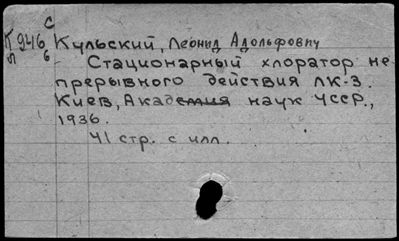 С
К 946 Кульский, Леонид Адольфович
Л б
Стационарный хлоратор не-
прерывного действия ЛК-3.
Киев, Академия наук УССР.,
1936.
41 стр. с илл.